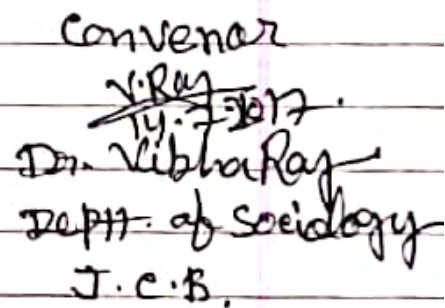 Convenar
V. Ray
14.7.2017.
Dr. Vibha Ray
Deptt. of Sociology
J.C.B.